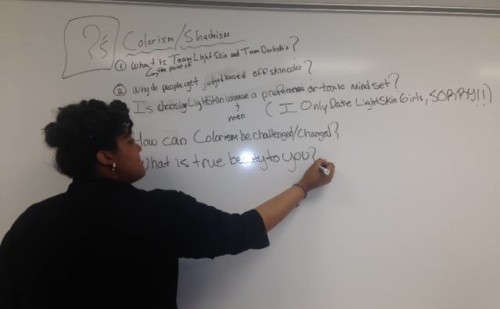 ?s
Colorism/Shadism
① What is Team LightSkin and Team Darkskin?
② Why do people get judged based off skincolor?
Is choosing LightSkin a preference or toxic mindset?
men
(I Only Date LightSkin Girls, SORRY!!)
How can Colorism be challenged/changed?
What is true beauty to you?